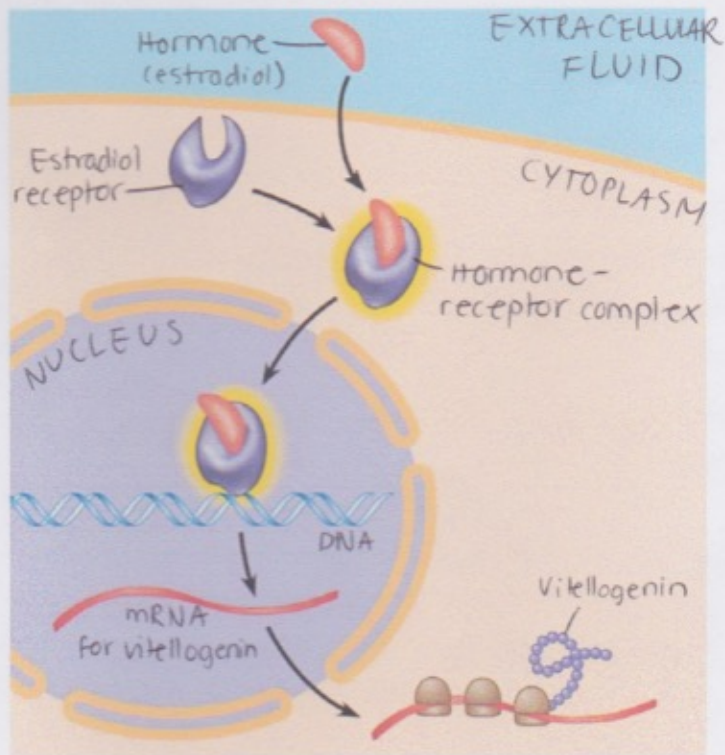 Hormone
(estradiol)
EXTRACELLULAR
FLUID
Estradiol
receptor
CYTOPLASM
Hormone-
receptor complex
NUCLEUS
DNA
mRNA
for vitellogenin
Vitellogenin